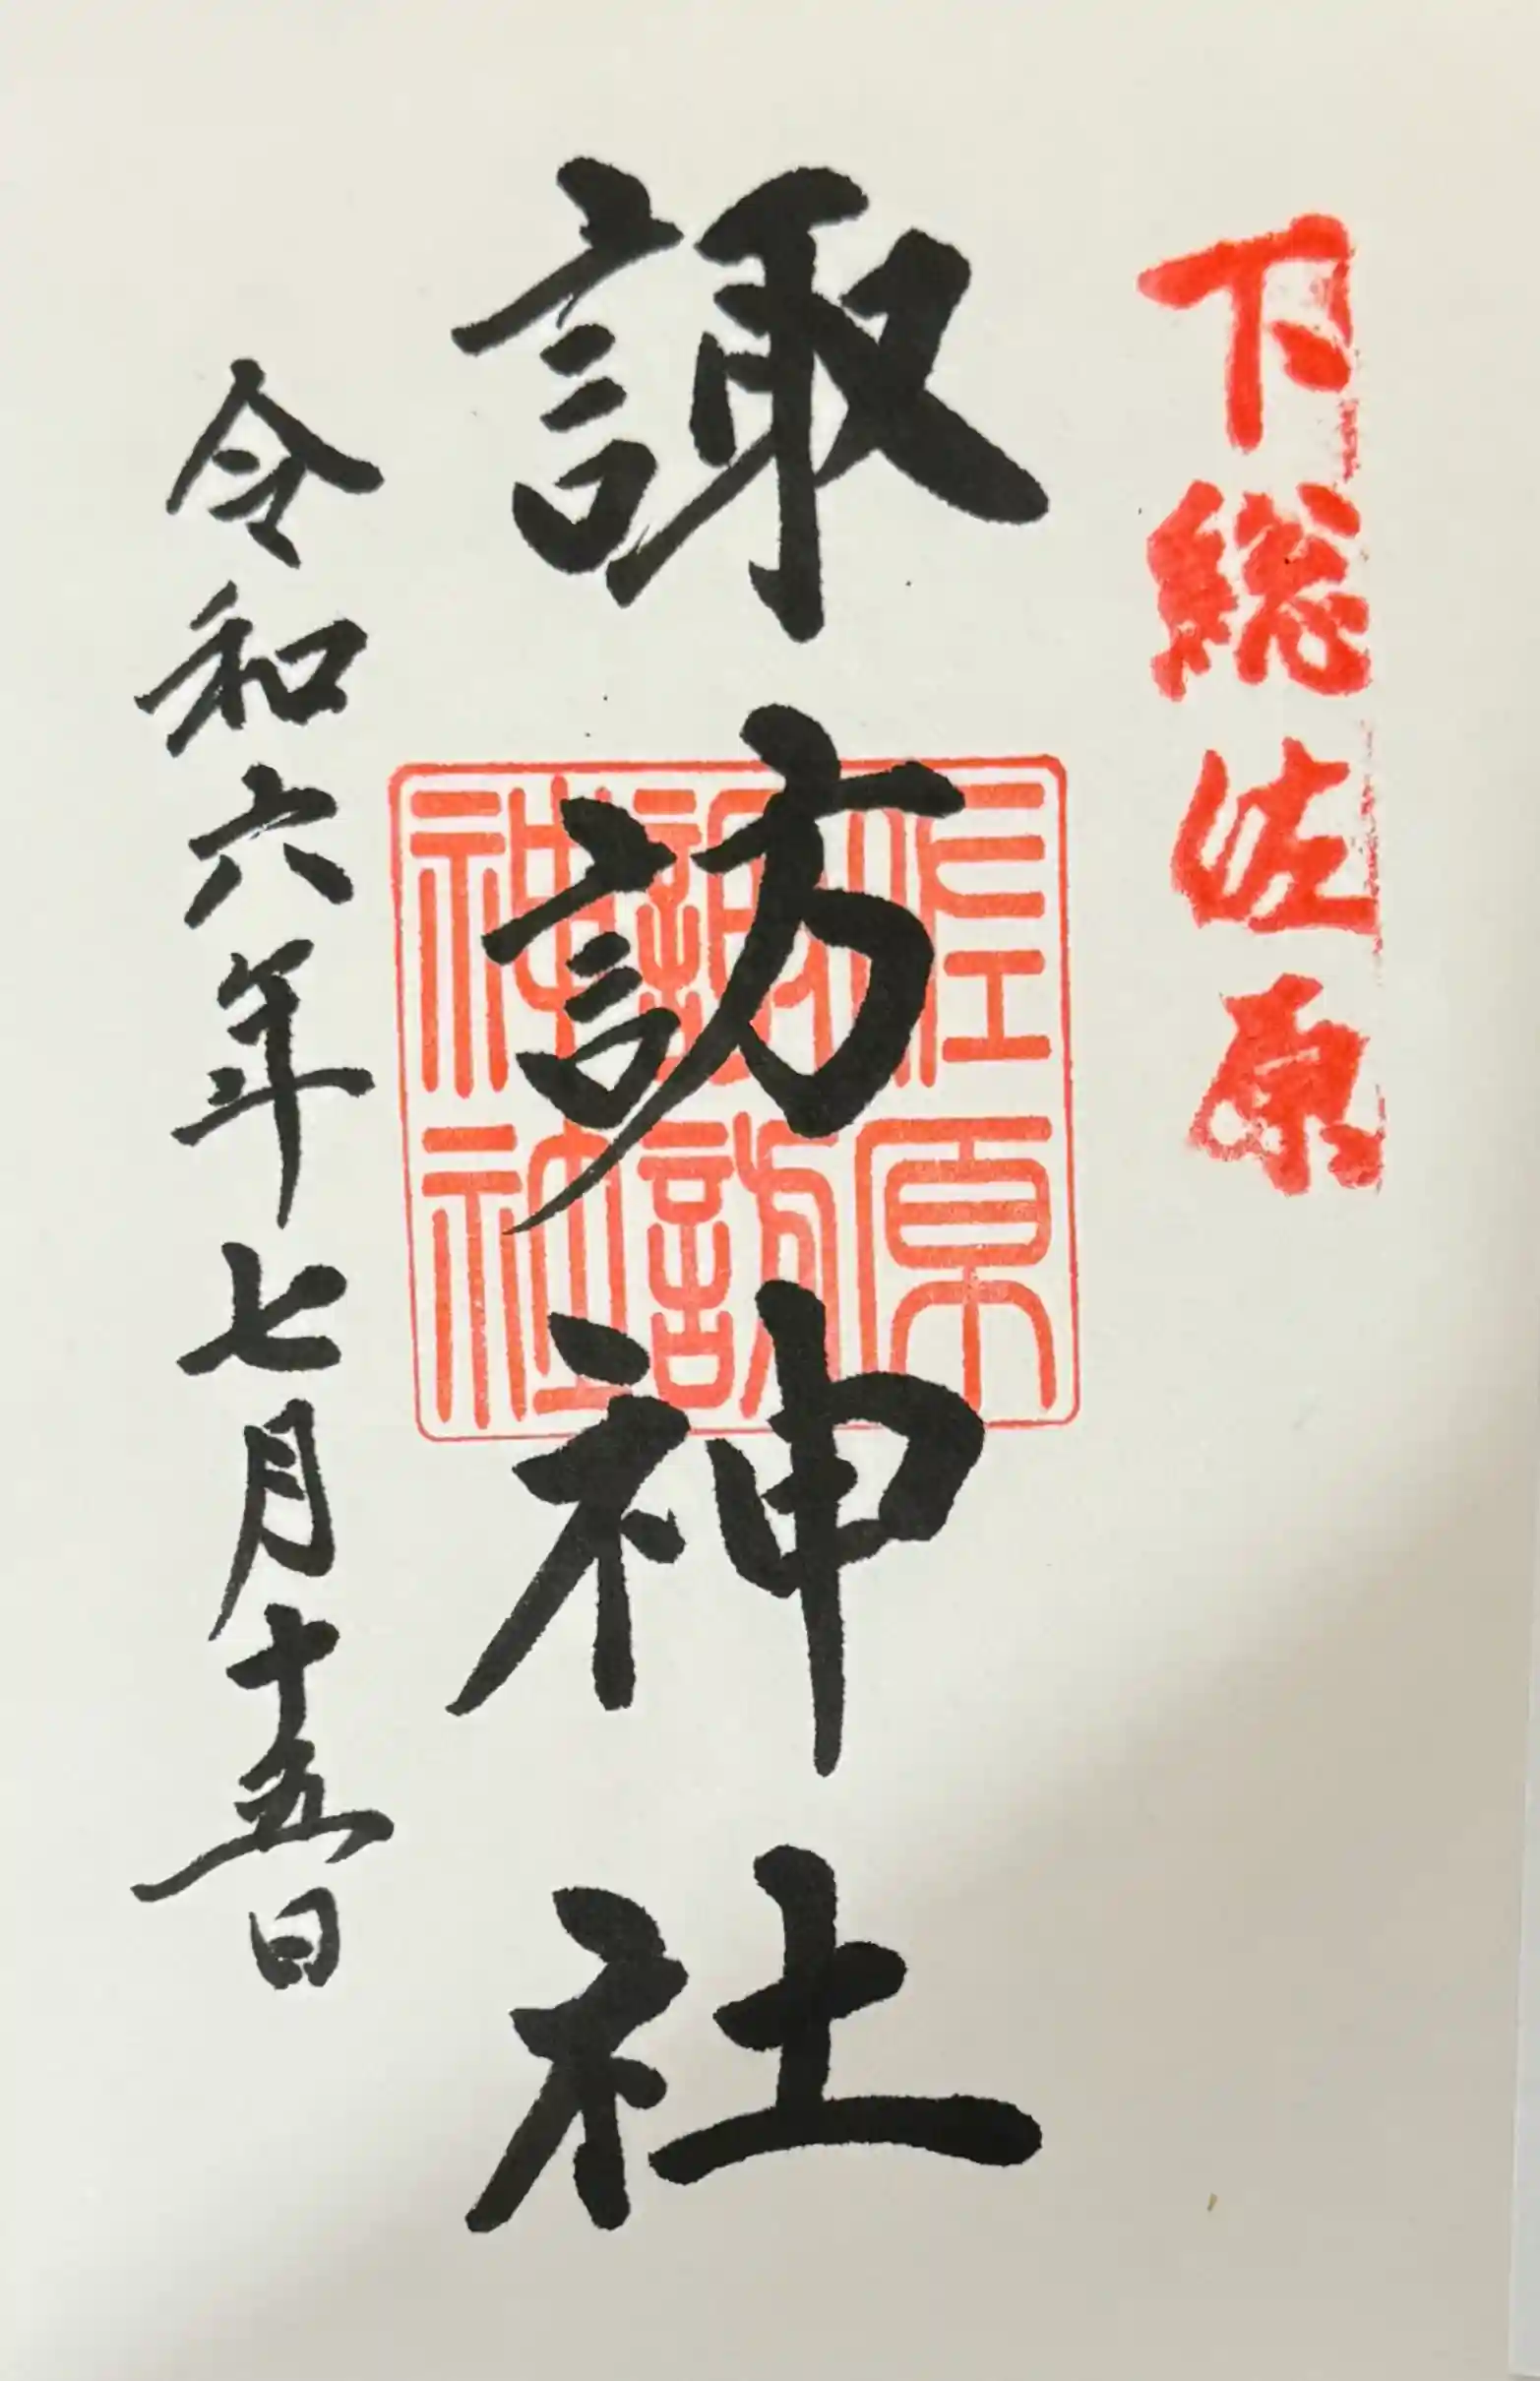 下総佐原
諏訪神社
佐原
諏訪
神社
令和六年七月十五日